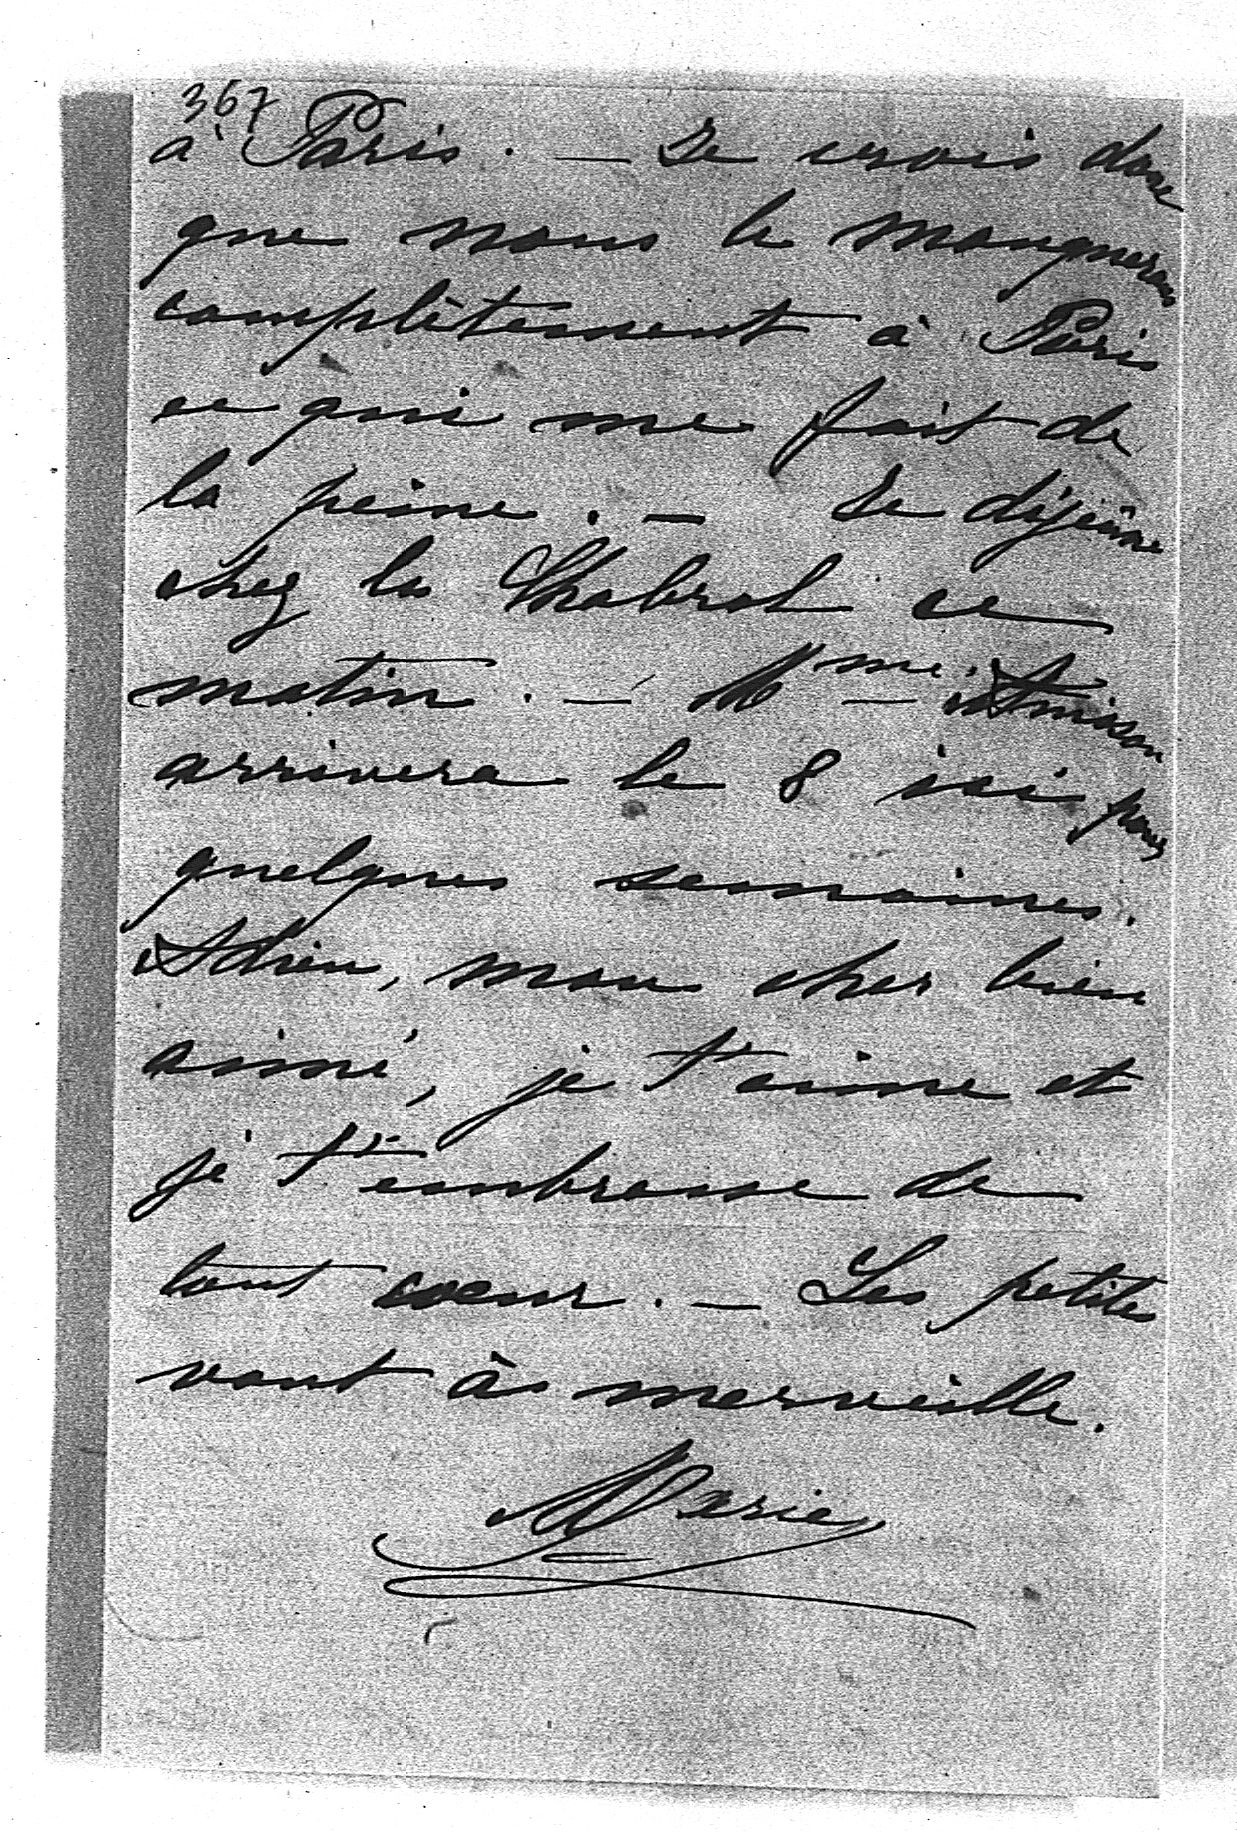 367
à Paris. — Je crois donc
que nous le manquerons
complètement à Paris
ce qui me fait de
la peine. — Je déjeûne
chez les Chabrol ce
matin. — Mme
arrivera le 8 ici pour
quelques semaines.
Adieu, mon cher bien
aimé, je t'aime et
je t'embrasse de
tout coeur. — Les petites
vont à merveille.
Marie